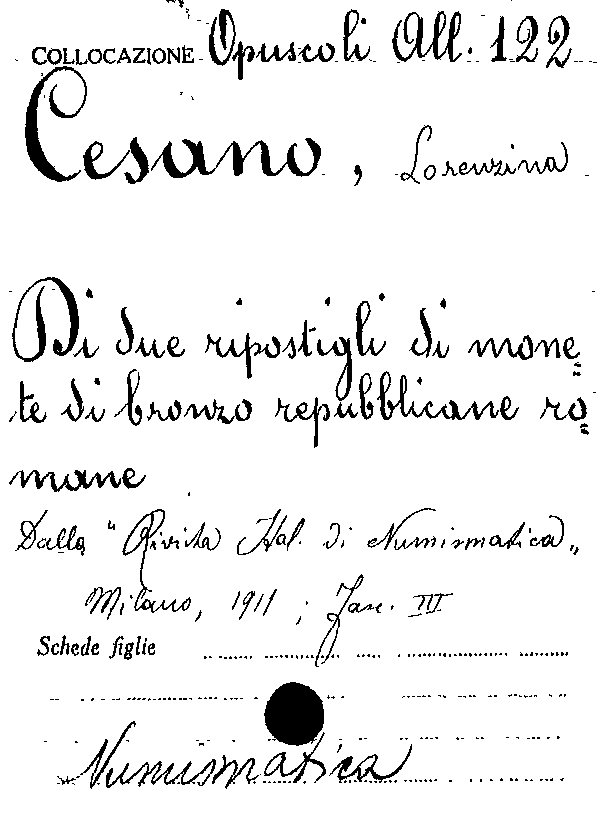 COLLOCAZIONE Opuscoli All. 122
Cesano, Lorenzina
Di due ripostigli di mone=
te di bronzo repubblicane ro=
mane
Dalla "Rivista Ital. di Numismatica„
Milano, 1911; Fasc. III
Schede figlie
Numismatica